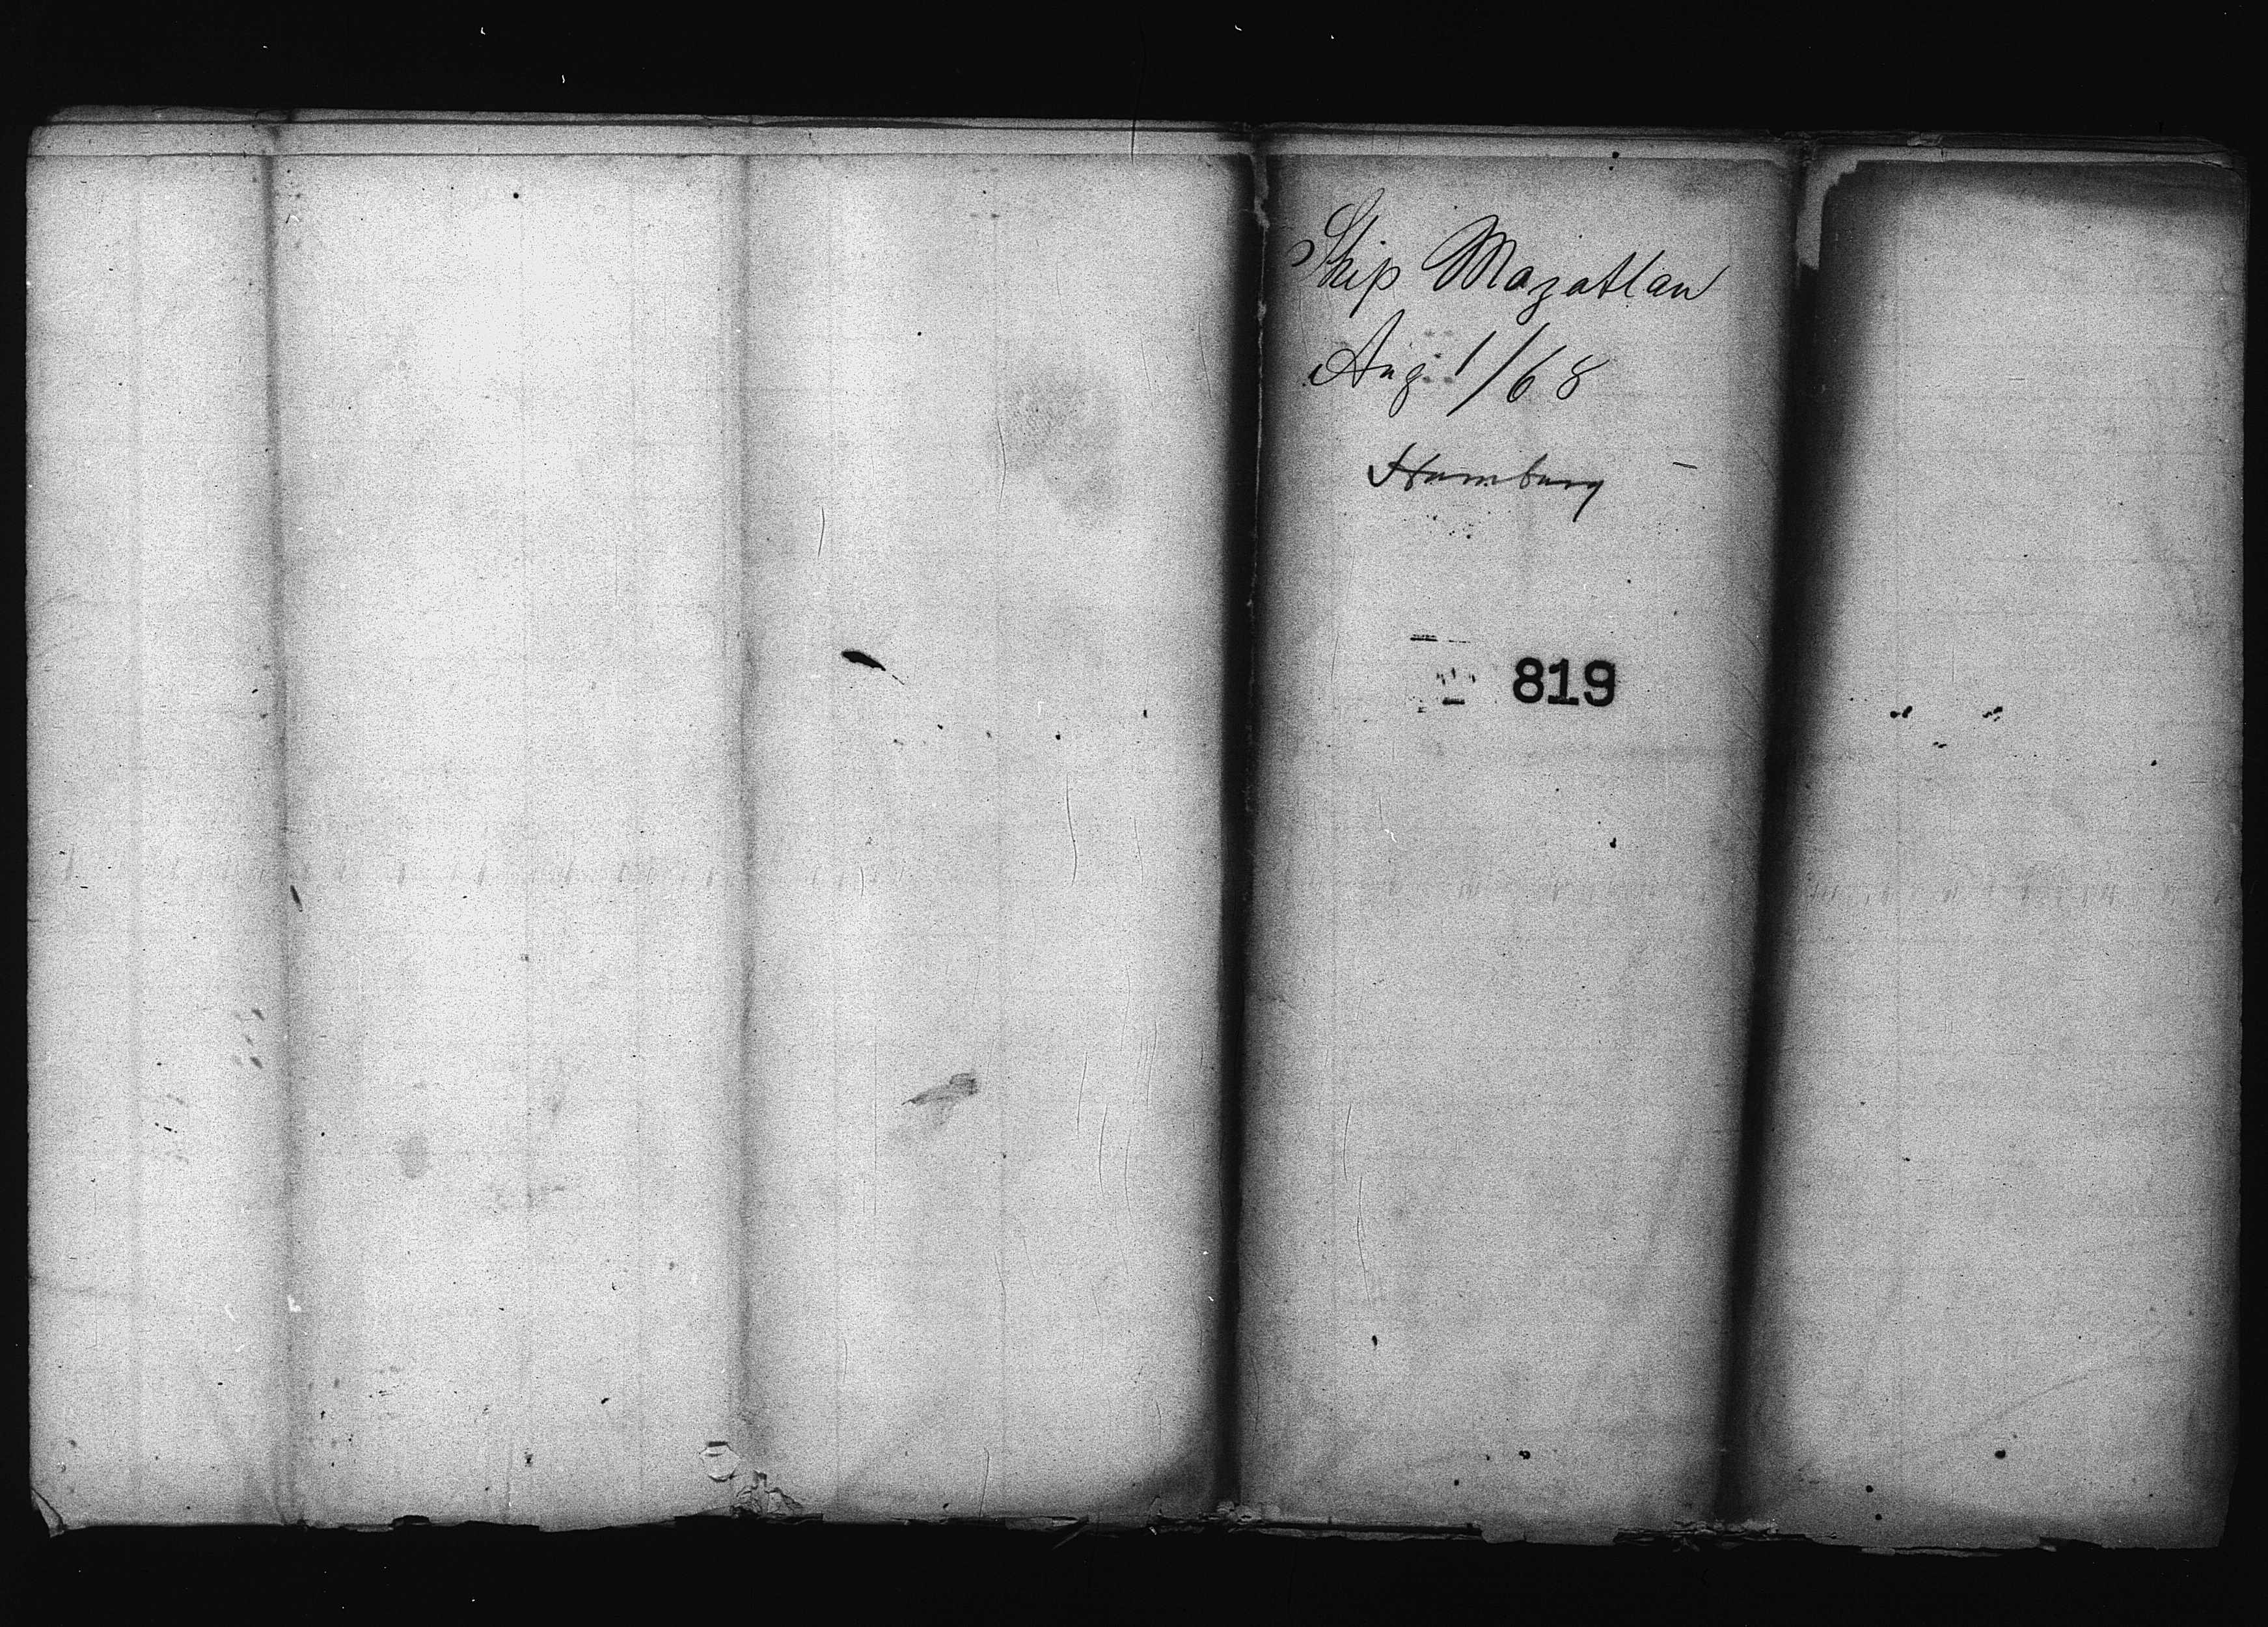 Ship Mazatlan
Aug. 1/68
Hamburg
819